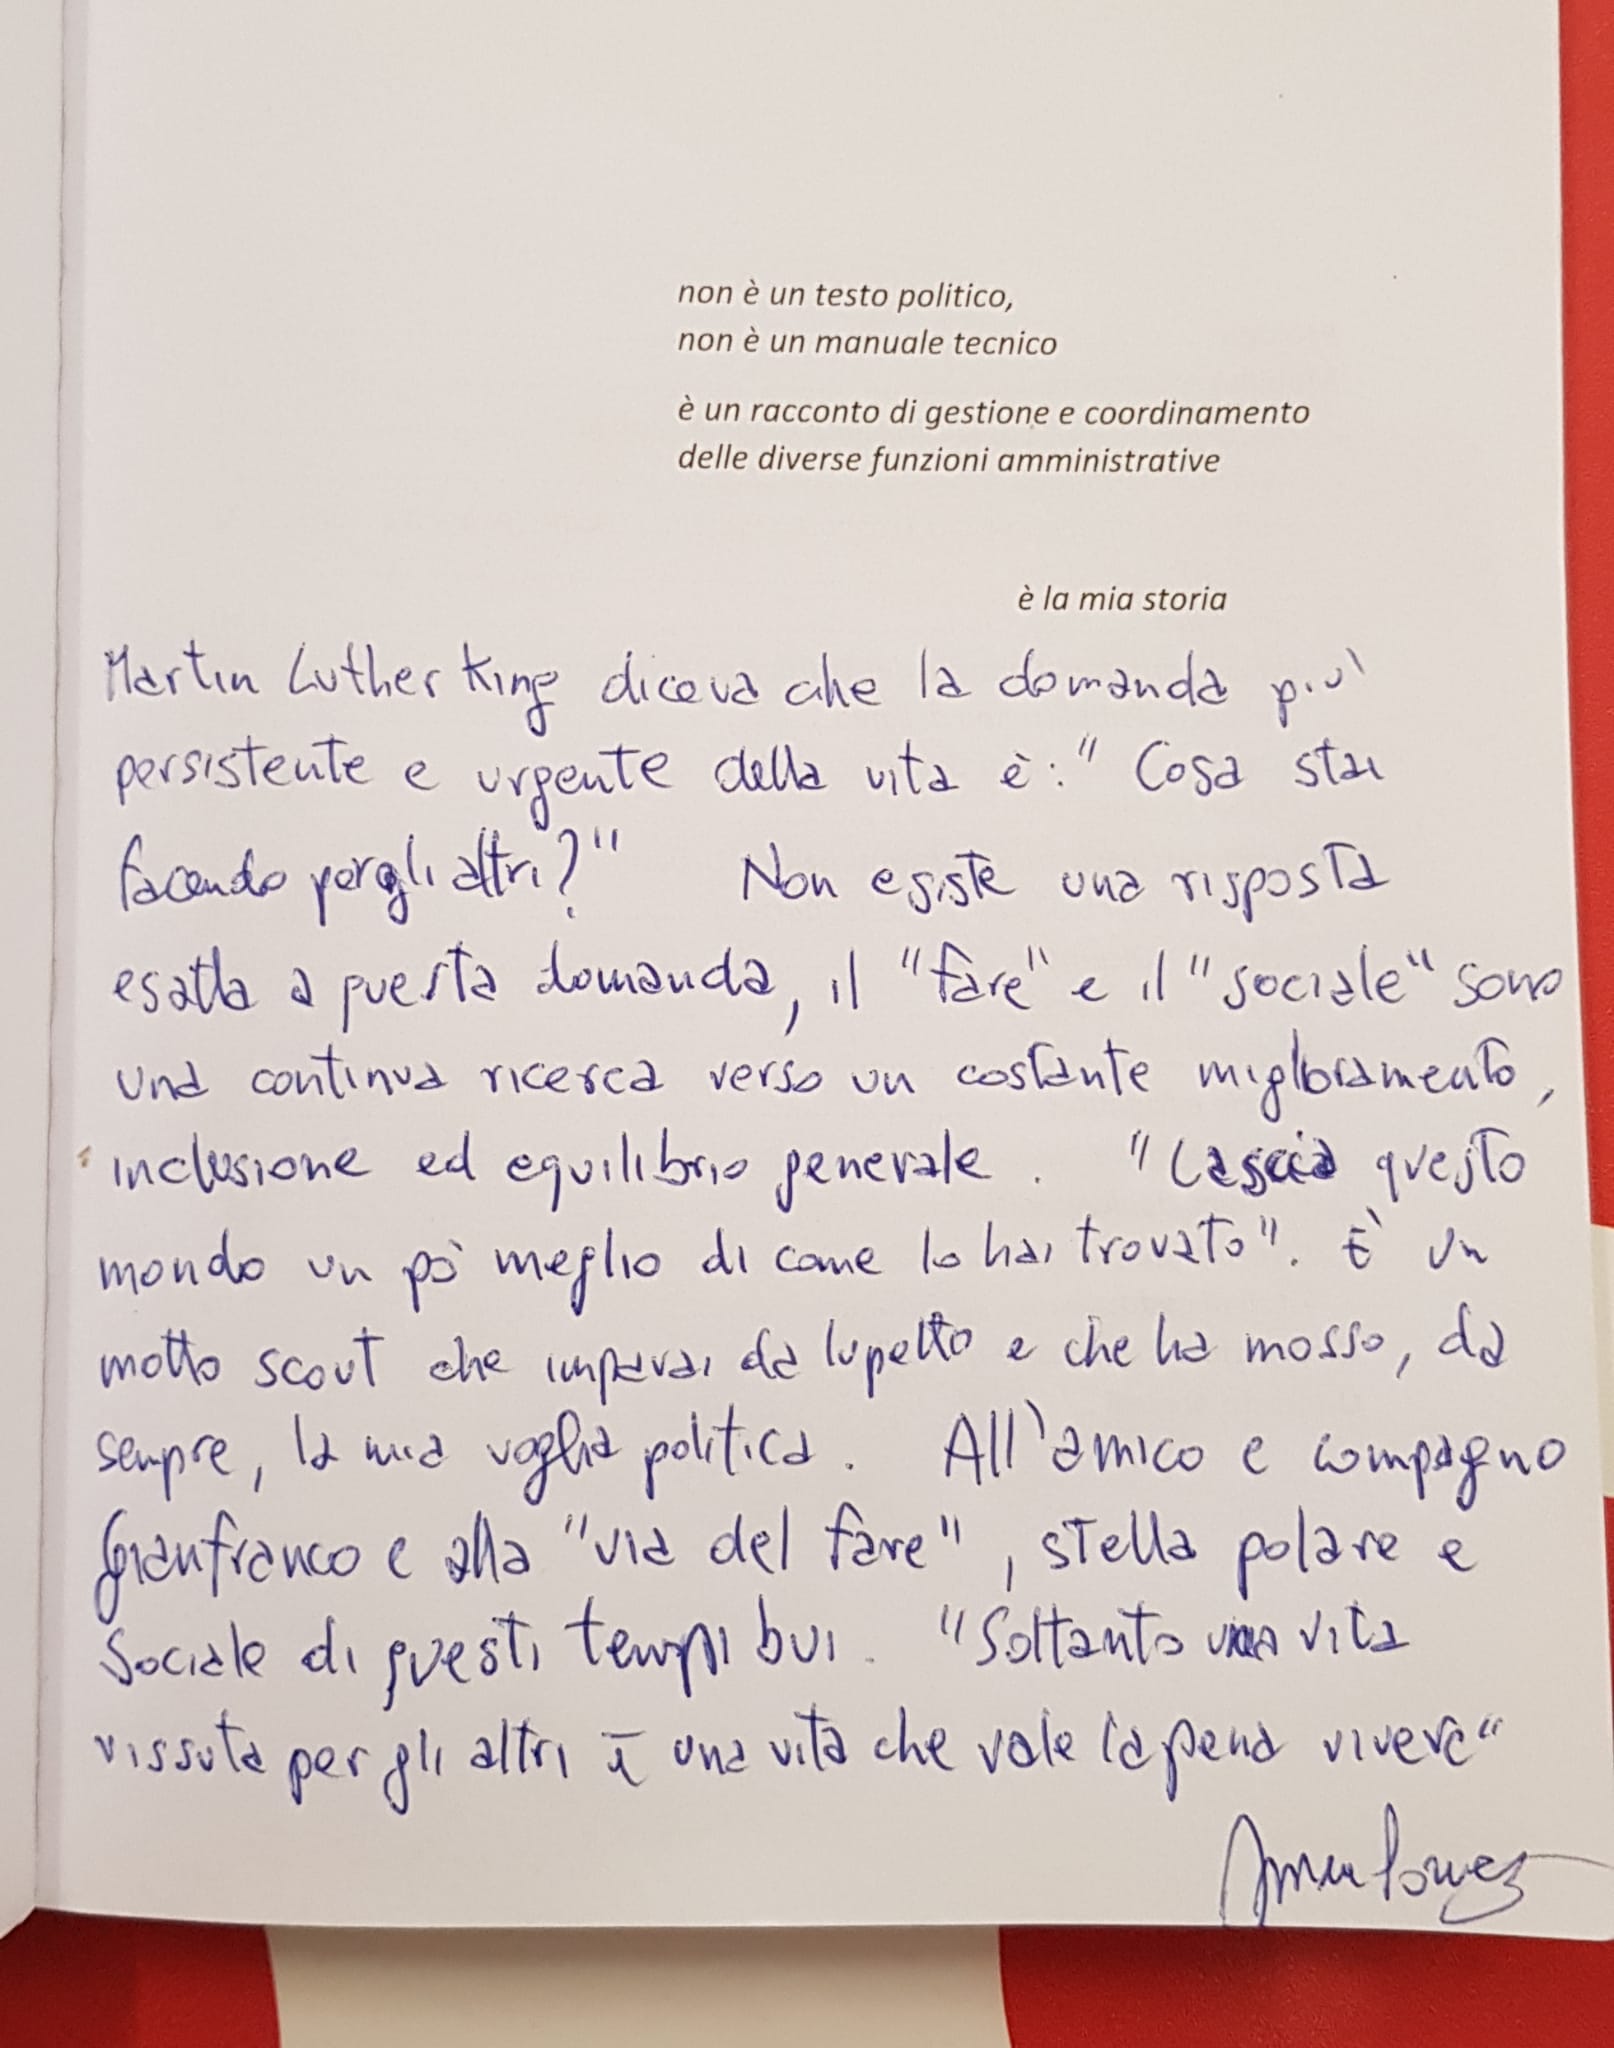 non è un testo politico,
non è un manuale tecnico
è un racconto di gestione e coordinamento
delle diverse funzioni amministrative
è la mia storia
Martin Luther King diceva che la domanda più
persistente e urgente della vita è: "Cosa stai
facendo per gli altri?" Non esiste una risposta
esatta a questa domanda, il "fare" e il "sociale" sono
una continua ricerca verso un costante miglioramento,
inclusione ed equilibrio generale. "Lascia questo
mondo un pò meglio di come lo hai trovato". È un
motto scout che imparai da lupetto e che ha mosso, da
sempre, la mia voglia politica. All'amico e compagno
Gianfranco e alla "via del fare", stella polare e
sociale di questi tempi bui. "Soltanto una vita
vissuta per gli altri è una vita che vale la pena vivere"